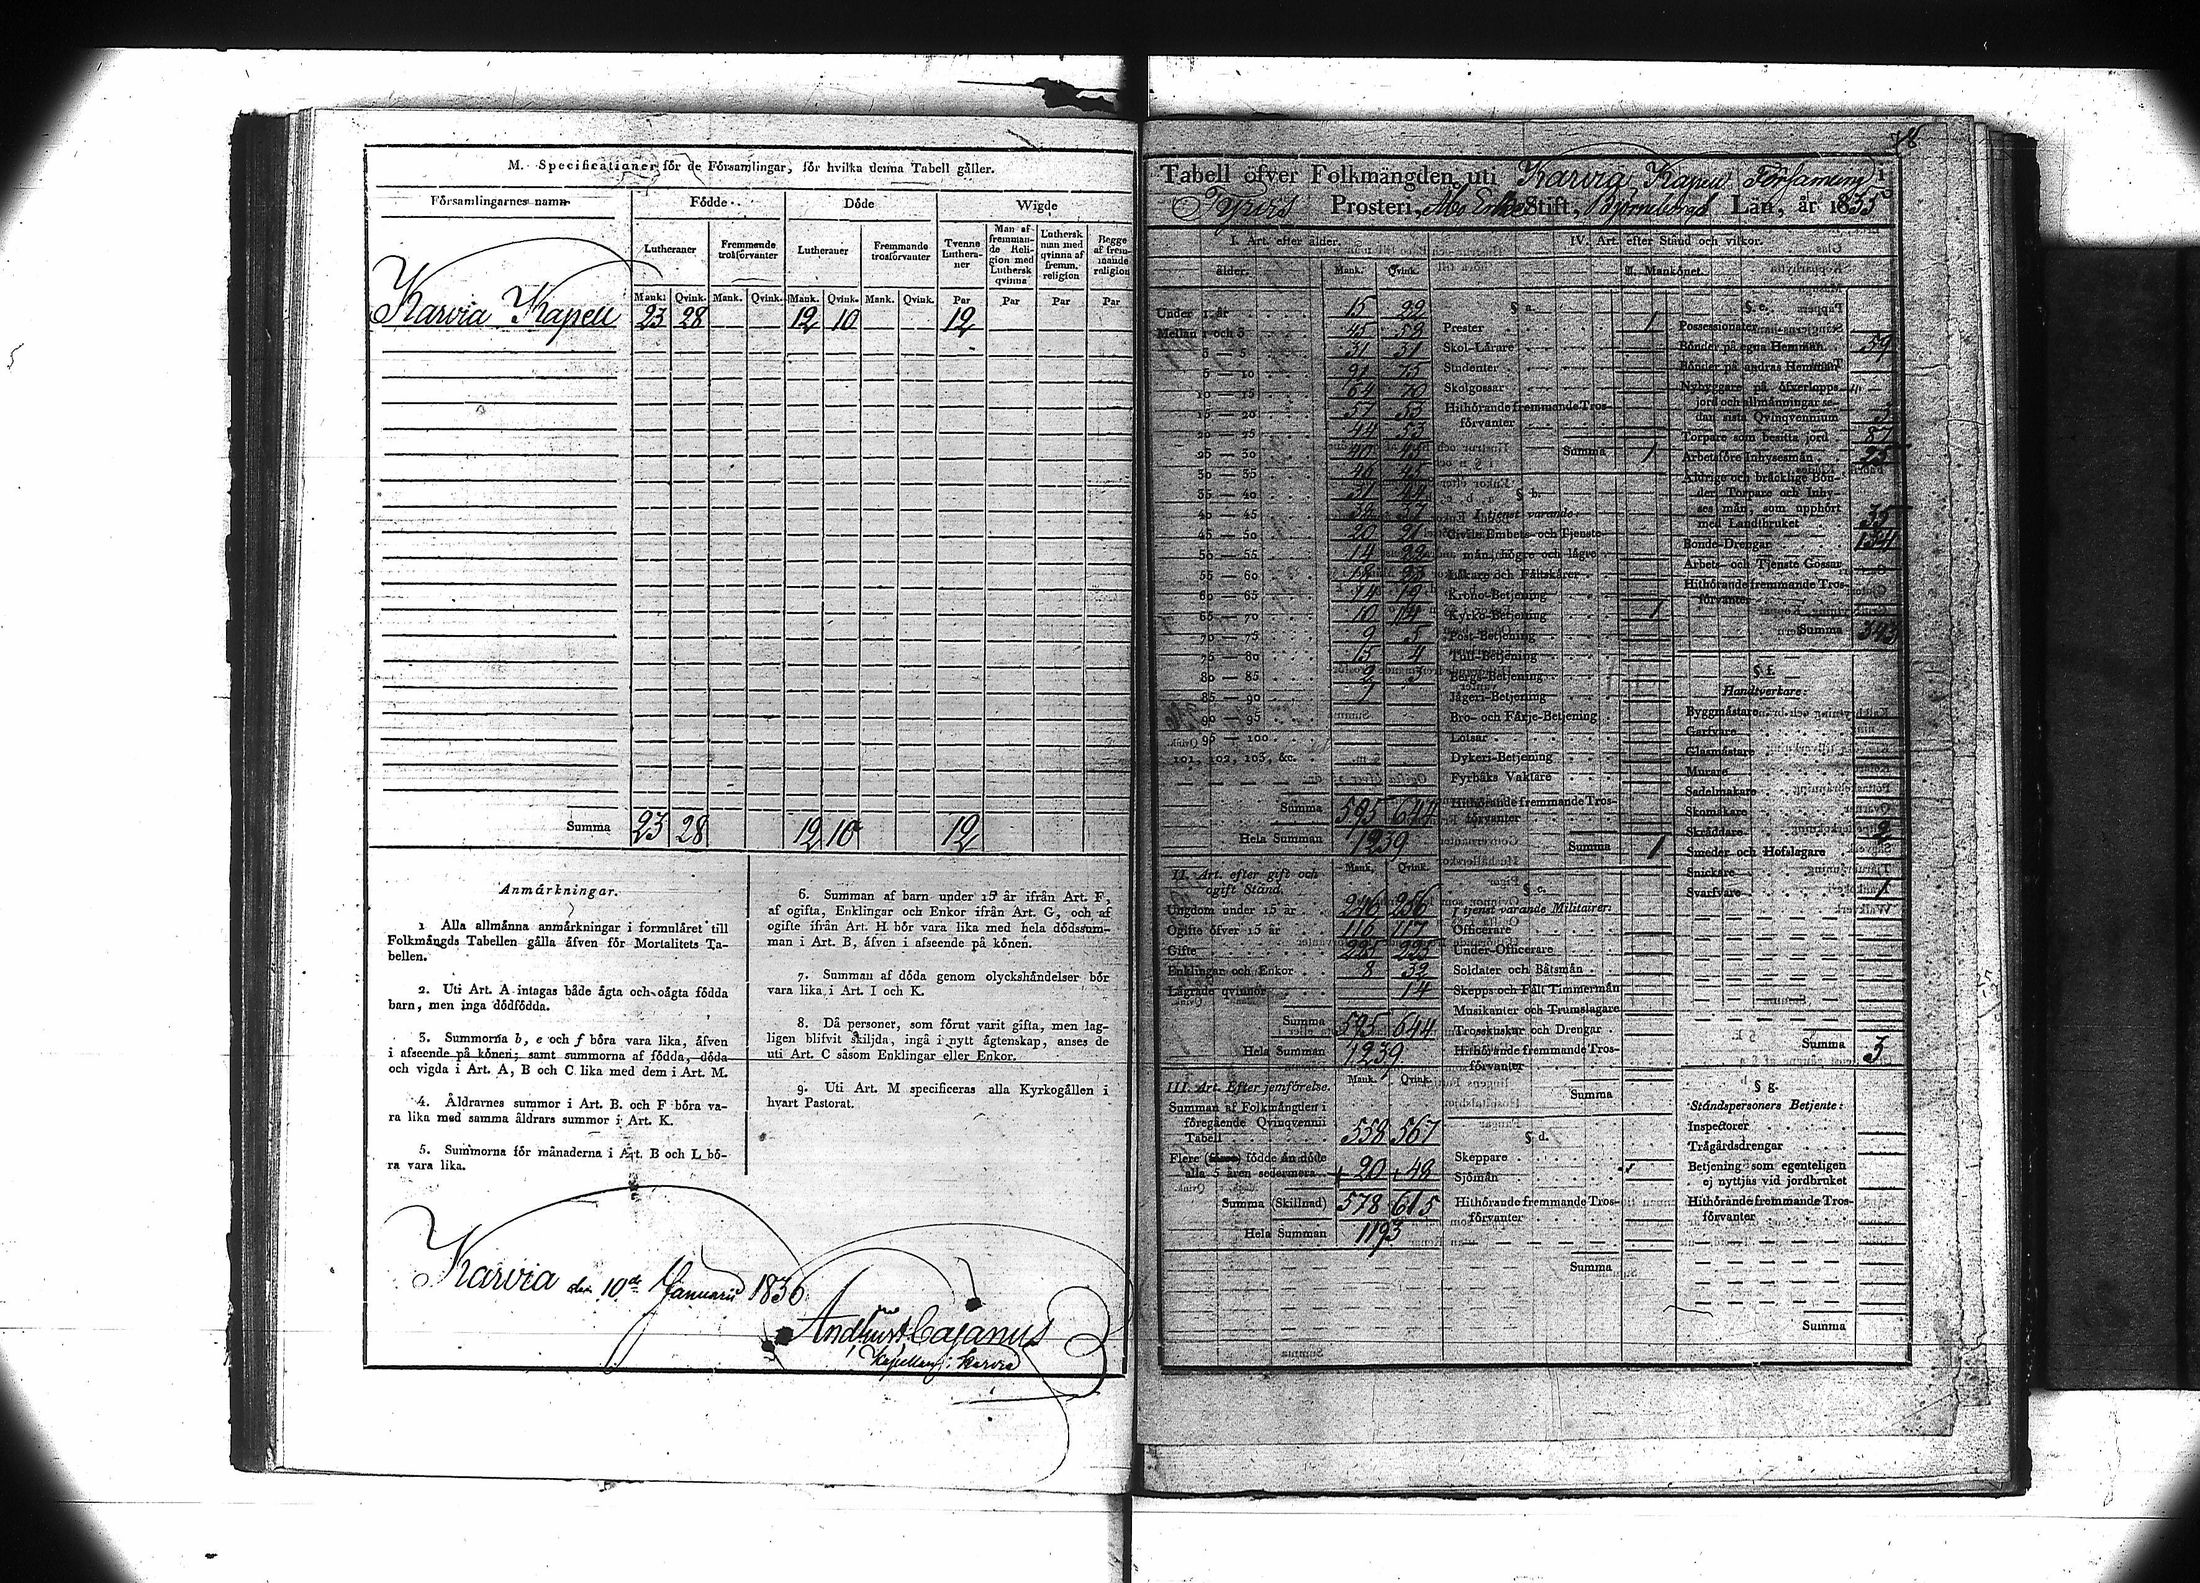 M. Specificationer för de Församlingar, för hvilka denna Tabell gäller.
Församlingarnes namn
Födde
Döde
Wigde
Lutheraner
Fremmande trosförvanter
Lutheraner
Fremmande trosförvanter
Tvenne Lutheraner
Man af fremmande Religion med Luthersk qvinna
Luthersk man med qvinna af fremm. religion
Begge af fremmande religion
Mank. Qvink. Mank. Qvink. Mank. Qvink. Mank. Qvink. Par Par Par Par
Karvia Kapell 23 28 12 10 12
Summa 23 28 12 10 12
Anmärkningar.
1 Alla allmänna anmärkningar i formuläret till
Folkmängds Tabellen gälla äfven för Mortalitets Ta-
bellen.
2. Uti Art. A intagas både ägta och oägta födda
barn, men inga dödfödda.
3. Summorna b, e och f böra vara lika, äfven
i afseende på könen; samt summorna af födda, döda
och vigda i Art. A, B och C lika med dem i Art. M.
4. Åldrarnes summor i Art. B. och F böra va-
ra lika med samma åldrars summor i Art. K.
5. Summorna för månaderna i Art. B och L bö-
ra vara lika.
6. Summan af barn under 15 år ifrån Art. F,
af ogifta, Enklingar och Enkor ifrån Art. G, och af
ogifte ifrån Art. H bör vara lika med hela dödssum-
man i Art. B, äfven i afseende på könen.
7. Summan af döda genom olyckshändelser bör
vara lika i Art. I och K.
8. Då personer, som förut varit gifta, men lag-
ligen blifvit skiljda, ingå i nytt ägtenskap, anses de
uti Art. C såsom Enklingar eller Enkor.
9. Uti Art. M specificeras alla Kyrkogällen i
hvart Pastorat.
Karvia den 10de Januarii 1836
Cajanus
Kapellan i Karvia
Tabell öfver Folkmängden uti Karvia Kapell Församling i
Prosteri, Åbo Erke Stift, Björneborgs Län, år 1835
I. Art. efter ålder.
ålder. Mank. Qvink.
Under 1 år 15 22
Mellan 1 och 3 45 58
3 — 5 31 31
5 — 10 91 75
10 — 15 64 70
15 — 20 57 53
20 — 25 44 53
25 — 30 40
30 — 35
35 — 40
40 — 45 37
45 — 50 20 21
50 — 55 14 22
55 — 60 23
60 — 65 14 19
65 — 70 10 14
70 — 75 9 5
75 — 80 15 4
80 — 85 2 3
85 — 90 1
90 — 95
95 — 100
101, 102, 103, &c.
Summa 595 644
Hela Summan 1239
II. Art. efter gift och
ogift Stånd.
Mank. Qvink.
Ungdom under 15 år 246 256
Ogifte öfver 15 år 116 117
Gifte 225 225
Enklingar och Enkor 8 32
Lägrade qvinnor 14
Summa 595 644
Hela Summan 1239
III. Art. Efter jemförelse.
Mank. Qvink.
Summan af Folkmängden i
föregående Qvinqvennii
Tabell 558 567
Flere födde än döde
alla 5 åren sedermera + 20 + 48
Summa (Skillnad) 578 615
Hela Summan 1193
IV. Art. efter Stånd och vilkor.
Mankönet.
§ a.
Prester 1
Skol-Lärare
Studenter
Skolgossar
Hithörande fremmande Tros-
förvanter
Summa 1
§ b.
I tjenst varande:
Civile Embets- och Tjenste-
män, högre och lägre
Läkare och Fältskärer
Krono-Betjening
Kyrko-Betjening 1
Post-Betjening
Tull-Betjening
Bergs-Betjening
Jägeri-Betjening
Bro- och Färje-Betjening
Lotsar
Dykeri-Betjening
Fyrbåks Vaktare
Hithörande fremmande Tros-
förvanter
Summa 1
§ c.
I tjenst varande Militairer:
Officerare
Under-Officerare
Soldater och Båtsmän
Skepps och Fält Timmermän
Musikanter och Trumslagare
Trosskuskar och Drengar
Hithörande fremmande Tros-
förvanter
Summa
§ d.
Skeppare
Sjömän
Hithörande fremmande Tros-
förvanter
Summa
§ e.
Possessionater
Bönder på egna Hemman 59
Bönder på andras Hemman
Nybyggare på öfverlopps
jord och allmänningar se-
dan sista Qvinqvennium 3
Torpare som besitta jord 87
Arbetsföre Inhysesmän 25
Åldrige och bräcklige Bön-
der, Torpare och Inhy-
ses män, som upphört
med Landtbruket 35
Bonde-Drengar 134
Arbets- och Tjenste Gossar
Hithörande fremmande Tros-
förvanter
Summa 343
§ f.
Handtverkare:
Byggmästare
Garfvare
Glasmästare
Murare
Sadelmakare
Skomakare
Skräddare 2
Smeder och Hofslagare
Snickare
Svarfvare 1
Summa 3
§ g.
Ståndspersoners Betjente:
Inspector
Trägårdsdrengar
Betjening som egenteligen
ej nyttjas vid jordbruket
Hithörande fremmande Tros-
förvanter
Summa